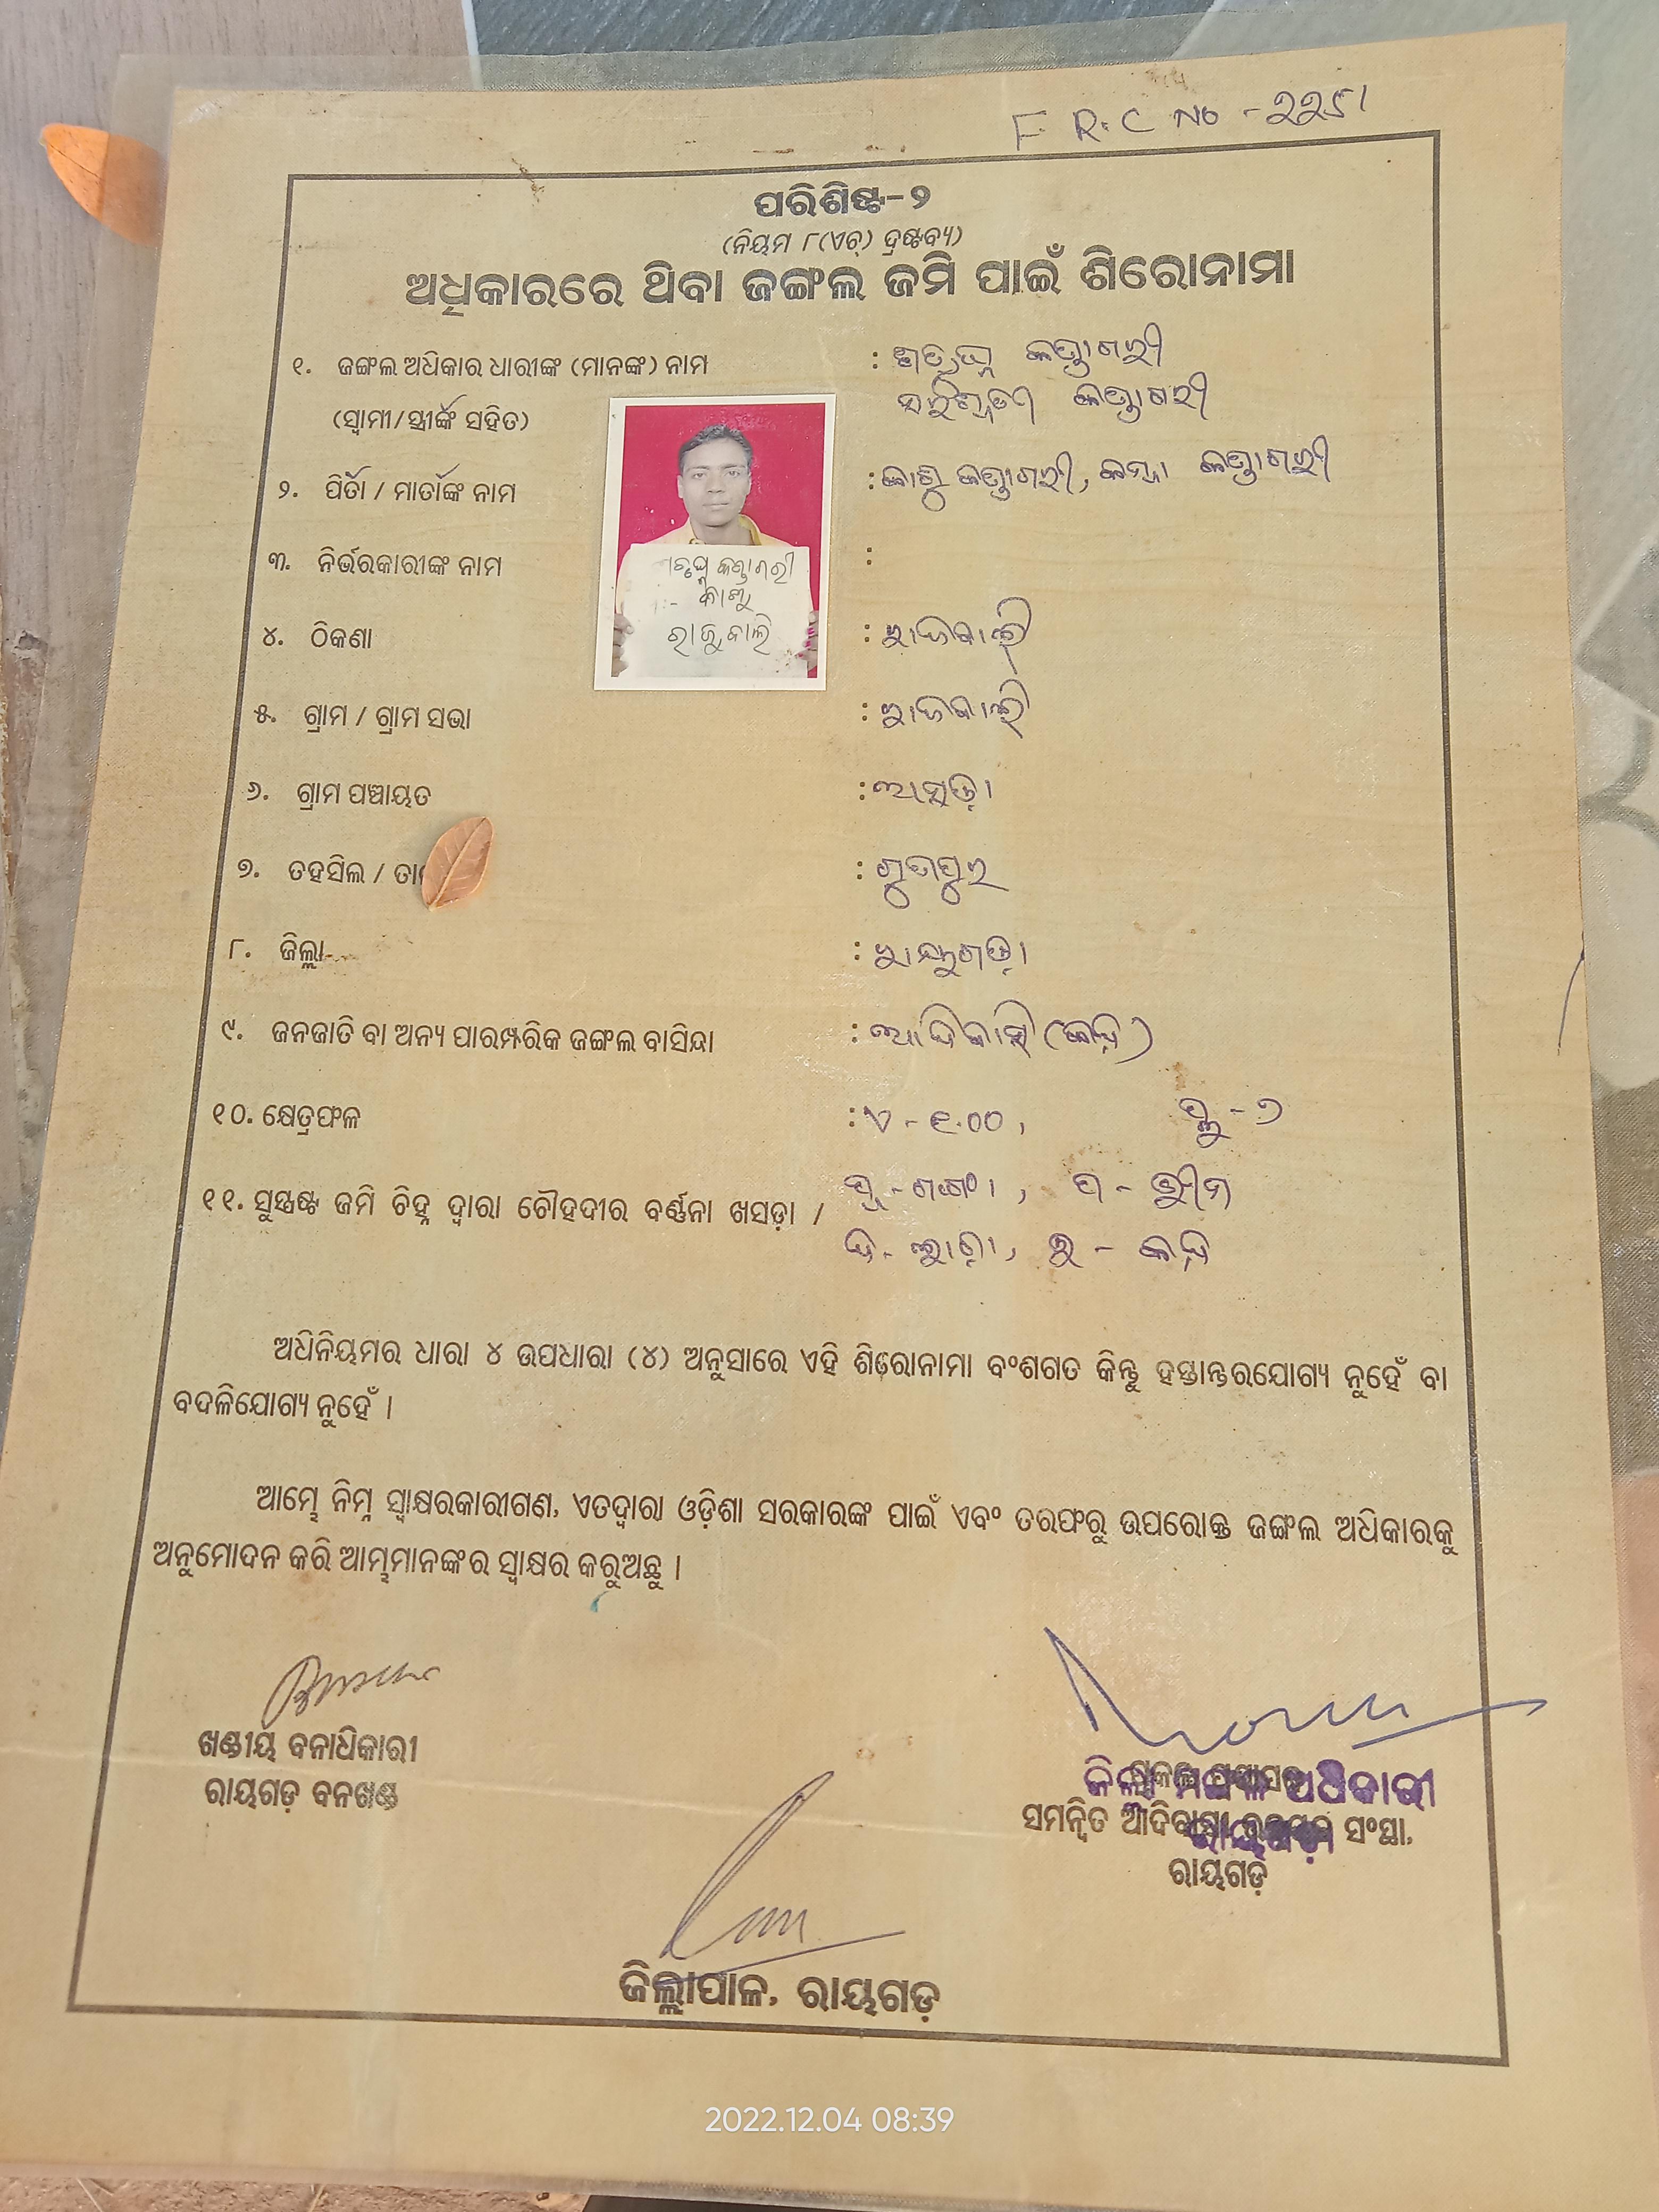 F. R. C No -
ପରିଶିଷ୍ଟ-୨
(ନିୟମ ୮(ଏଚ୍) ଦ୍ରଷ୍ଟବ୍ୟ)
ଅଧିକାରରେ ଥିବା ଜଙ୍ଗଲ ଜମି ପାଇଁ ଶିରୋନାମା
୧. ଜଙ୍ଗଲ ଅଧିକାର ଧାରୀଙ୍କ (ମାନଙ୍କ) ନାମ : ଶତୃଘ୍ନ କଣ୍ଡାଗରୀ
(ସ୍ୱାମୀ/ସ୍ତ୍ରୀଙ୍କ ସହିତ) କଣ୍ଡାଗରୀ
୨. ପିତା / ମାତାଙ୍କ ନାମ : କାଣ୍ଡୁ କଣ୍ଡାଗରୀ, କଣ୍ଡାଗରୀ
୩. ନିର୍ଭରକାରୀଙ୍କ ନାମ :
କଣ୍ଡାଗରୀ
କାଣ୍ଡୁ
ରାଜୁବାଲି
୪. ଠିକଣା : ରାଜବାଲି
୫. ଗ୍ରାମ / ଗ୍ରାମ ସଭା : ରାଜବାଲି
୬. ଗ୍ରାମ ପଞ୍ଚାୟତ :
୭. ତହସିଲ / : ଗୁଡାପୁର
୮. ଜିଲ୍ଲା : ରାୟଗଡ଼ା
୯. ଜନଜାତି ବା ଅନ୍ୟ ପାରମ୍ପରିକ ଜଙ୍ଗଲ ବାସିନ୍ଦା : ଆଦିବାସୀ (କନ୍ଧ)
୧୦. କ୍ଷେତ୍ରଫଳ : ଏ - ୧.୦୦, ପ୍ଲ - ୨
୧୧. ସୁସ୍ପଷ୍ଟ ଜମି ଚିହ୍ନ ଦ୍ୱାରା ଚୌହଦୀର ବର୍ଣ୍ଣନା ଖସଡ଼ା /
ଅଧିନିୟମର ଧାରା ୪ ଉପଧାରା (୪) ଅନୁସାରେ ଏହି ଶିରୋନାମା ବଂଶଗତ କିନ୍ତୁ ହସ୍ତାନ୍ତରଯୋଗ୍ୟ ନୁହେଁ ବା
ବଦଳିଯୋଗ୍ୟ ନୁହେଁ ।
ଆମ୍ଭେ ନିମ୍ନ ସ୍ୱାକ୍ଷରକାରୀଗଣ, ଏତଦ୍ୱାରା ଓଡ଼ିଶା ସରକାରଙ୍କ ପାଇଁ ଏବଂ ତରଫରୁ ଉପରୋକ୍ତ ଜଙ୍ଗଲ ଅଧିକାରକୁ
ଅନୁମୋଦନ କରି ଆମ୍ଭମାନଙ୍କର ସ୍ୱାକ୍ଷର କରୁଅଛୁ ।
ଖଣ୍ଡୀୟ ବନାଧିକାରୀ
ରାୟଗଡ଼ ବନଖଣ୍ଡ
ଜିଲ୍ଲା ମଙ୍ଗଳ ଅଧିକାରୀ
ରାୟଗଡ଼ା
ସମନ୍ୱିତ ଆଦିବାସୀ ସଂସ୍ଥା,
ରାୟଗଡ଼
ଜିଲ୍ଲାପାଳ, ରାୟଗଡ଼
2022.12.04 08:39